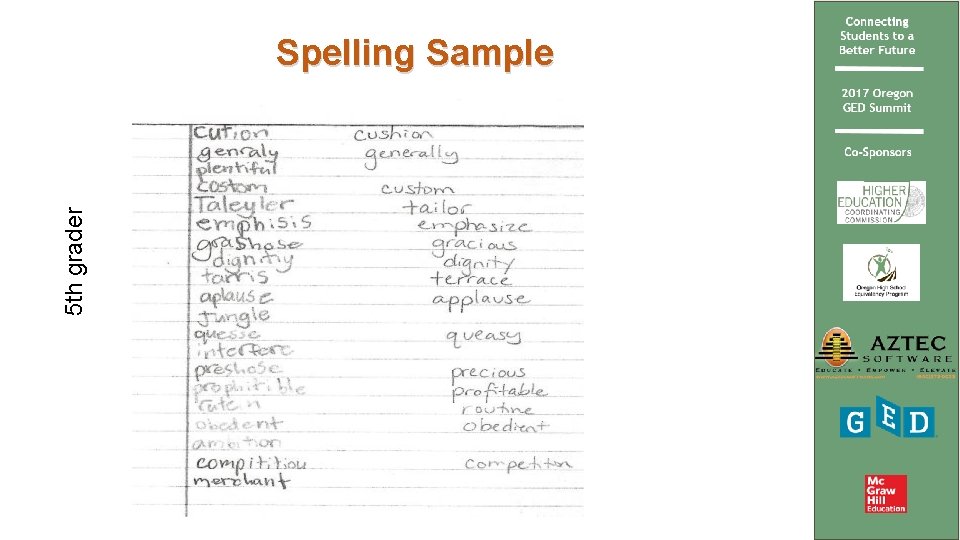 Spelling Sample
5th grader
cution cushion
genraly generally
plentiful
costom custom
Taleyler tailor
emphisis emphasize
grashose gracious
dignitiy dignity
tarris terrace
aplause applause
jungle
quesse queasy
interfere
preshose precious
prophitible profitable
rutein routine
obedent obedient
ambition
compitition competiton
merchant
Connecting
Students to a
Better Future
2017 Oregon
GED Summit
Co-Sponsors
HIGHER
EDUCATION
COORDINATING
COMMISSION
Oregon High School
Equivalency Program
AZTEC
SOFTWARE
EDUCATE • EMPOWER • ELEVATE
GED
Mc
Graw
Hill
Education